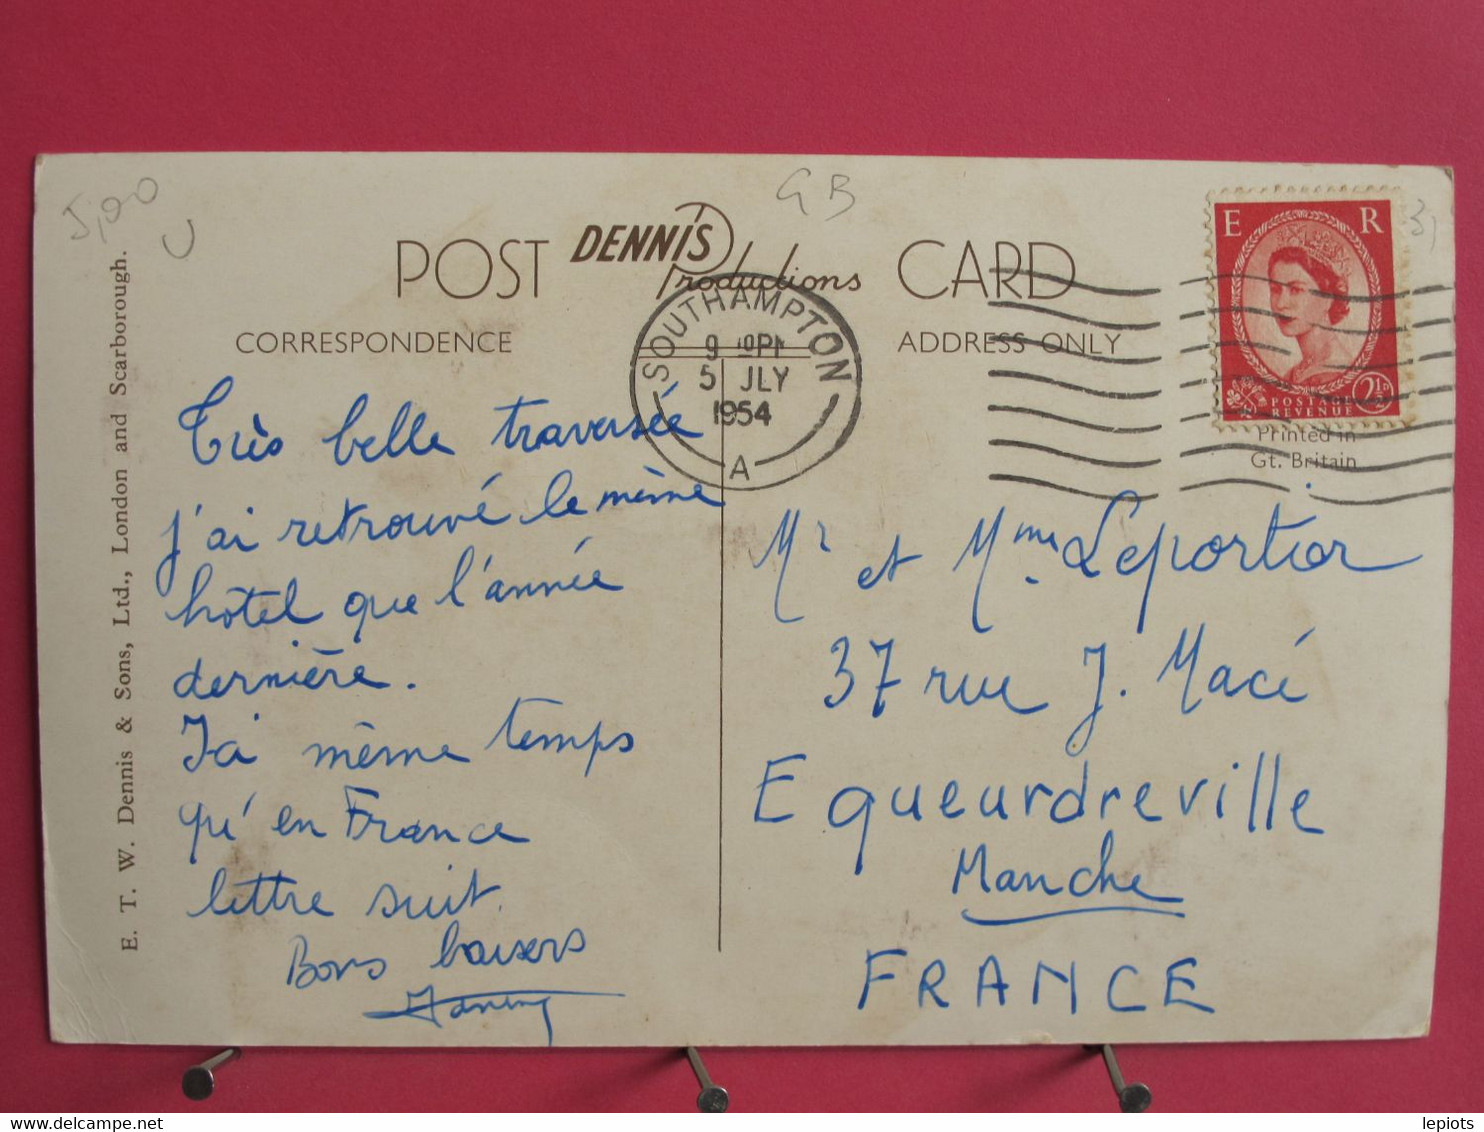 5,00
U
GB
3,
POST DENNIS Productions CARD
CORRESPONDENCE
ADDRESS ONLY
E. T. W. Dennis & Sons, Ltd., London and Scarborough.
SOUTHAMPTON
9 PM
5 JLY
1954
A
E R
POSTAGE 2½D
REVENUE
Printed in
Gt. Britain
Très belle traversée
j'ai retrouvé le même
hôtel que l'année
dernière.
Ici même temps
qu'en France
lettre suit.
Bons baisers
Mr et Mme Leportier
37 rue J. Macé
Equeurdreville
Manche
FRANCE
lepiots